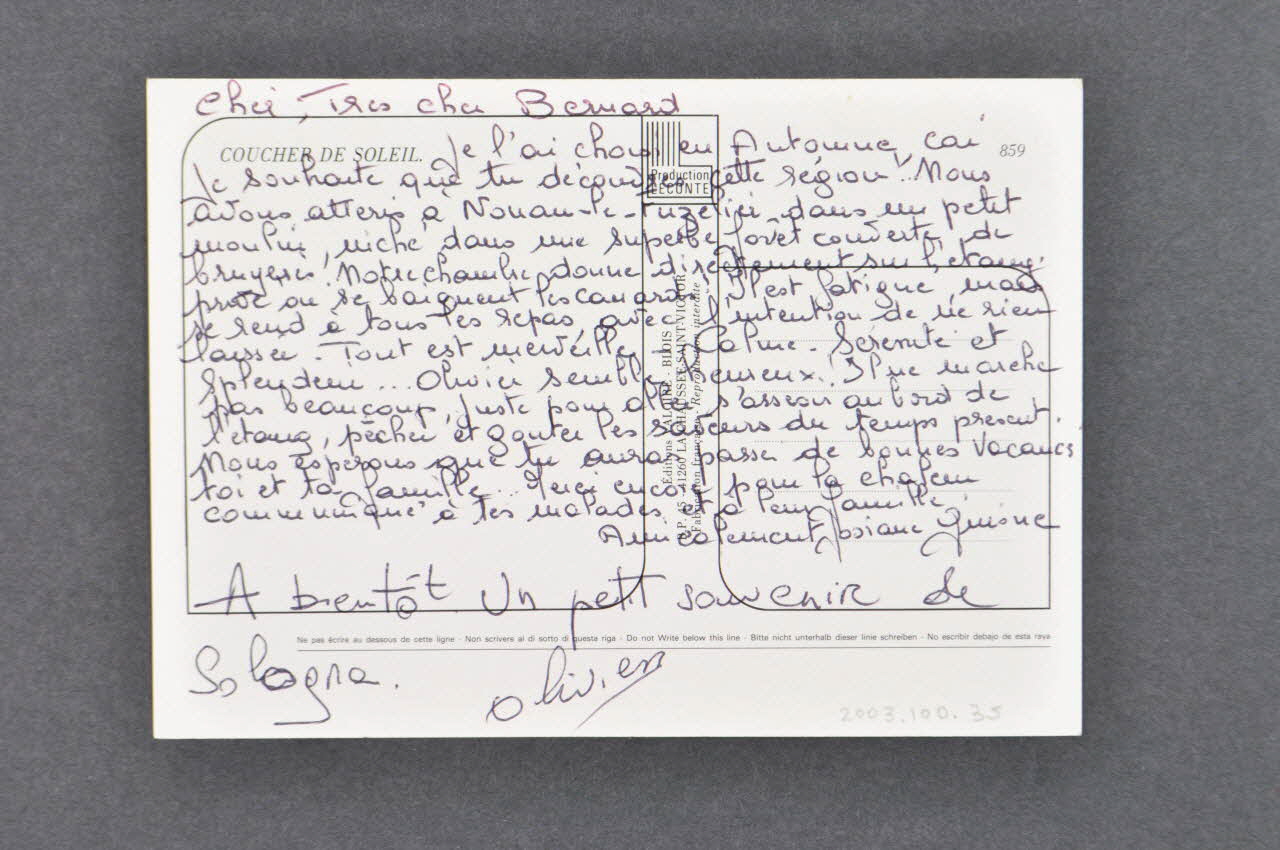 Cher, Tres cher Bernard
COUCHER DE SOLEIL.
859
Je l'ai choisi en Automne, car
Je souhaite que tu découvres cette région! Nous
avons atteris à Nouan-le-Fuzelier dans un petit
moulin, niché dans une superbe forêt couverte de
bruyeres. Notre chambre donne directement sur l'étang
privé ou se baignent les canards. Il est fatigué, mais
se rend à tous les repas, avec l'intention de ne rien
laisser. Tout est merveille - Calme. Sérénité et
Splendeur... Olivier semble heureux. Il ne marche
pas beaucoup, juste pour aller s'asseoir au bord de
l'étang, pêcher et gouter les saveurs du temps présent.
Nous esperons que tu auras passer de bonnes vacances
toi et ta famille. Merci encore pour la chaleur
communiqué à tes malades et à leur famille.
Amicalement Josiane
A bientôt Un petit souvenir de
Sologne.
Olivier
Production
LECONTE
Editions VALOIRE - BLOIS
B.P. 45 - 41260 LA CHAUSSÉE-SAINT-VICTOR
Fabrication française - Reproduction interdite
Ne pas écrire au dessous de cette ligne - Non scrivere al di sotto di questa riga - Do not Write below this line - Bitte nicht unterhalb dieser linie schreiben - No escribir debajo de esta raya
2003.100.35